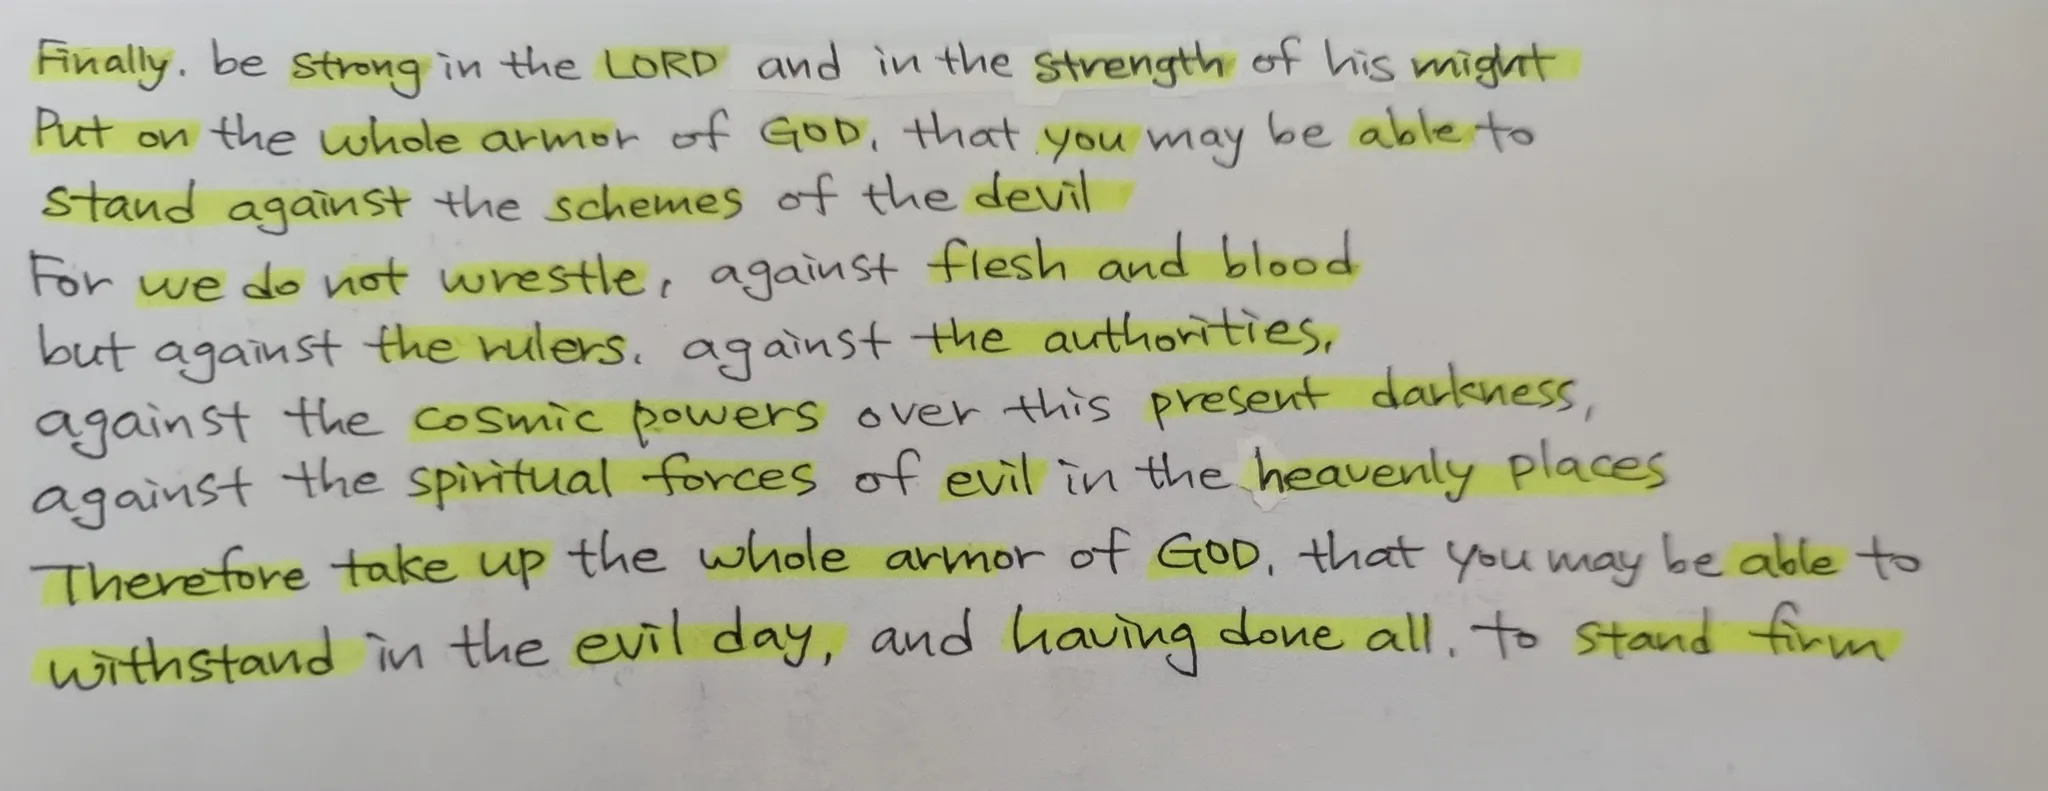 Finally. be strong in the LORD and in the strength of his might
Put on the whole armor of GOD, that you may be able to
stand against the schemes of the devil
For we do not wrestle, against flesh and blood
but against the rulers. against the authorities,
against the cosmic powers over this present darkness,
against the spiritual forces of evil in the heavenly places
Therefore take up the whole armor of GOD, that you may be able to
withstand in the evil day, and having done all. to stand firm